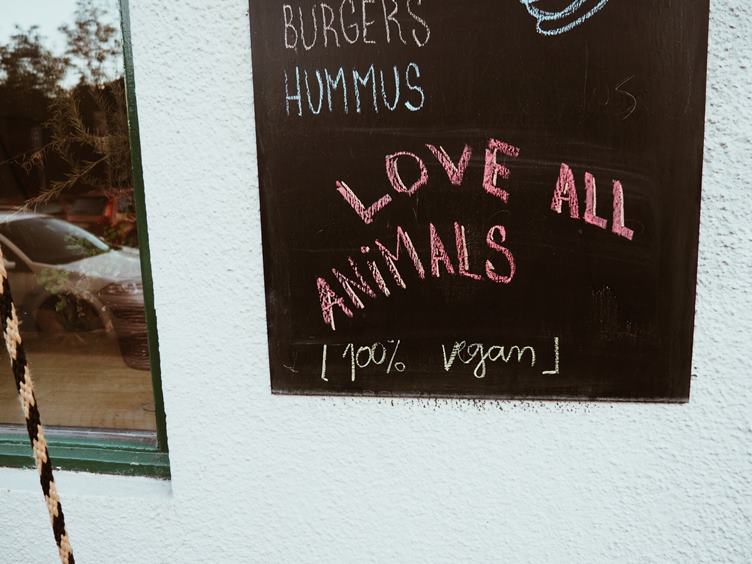 BURGERS
HUMMUS
LOVE ALL
ANiMALS
[100% vegan]